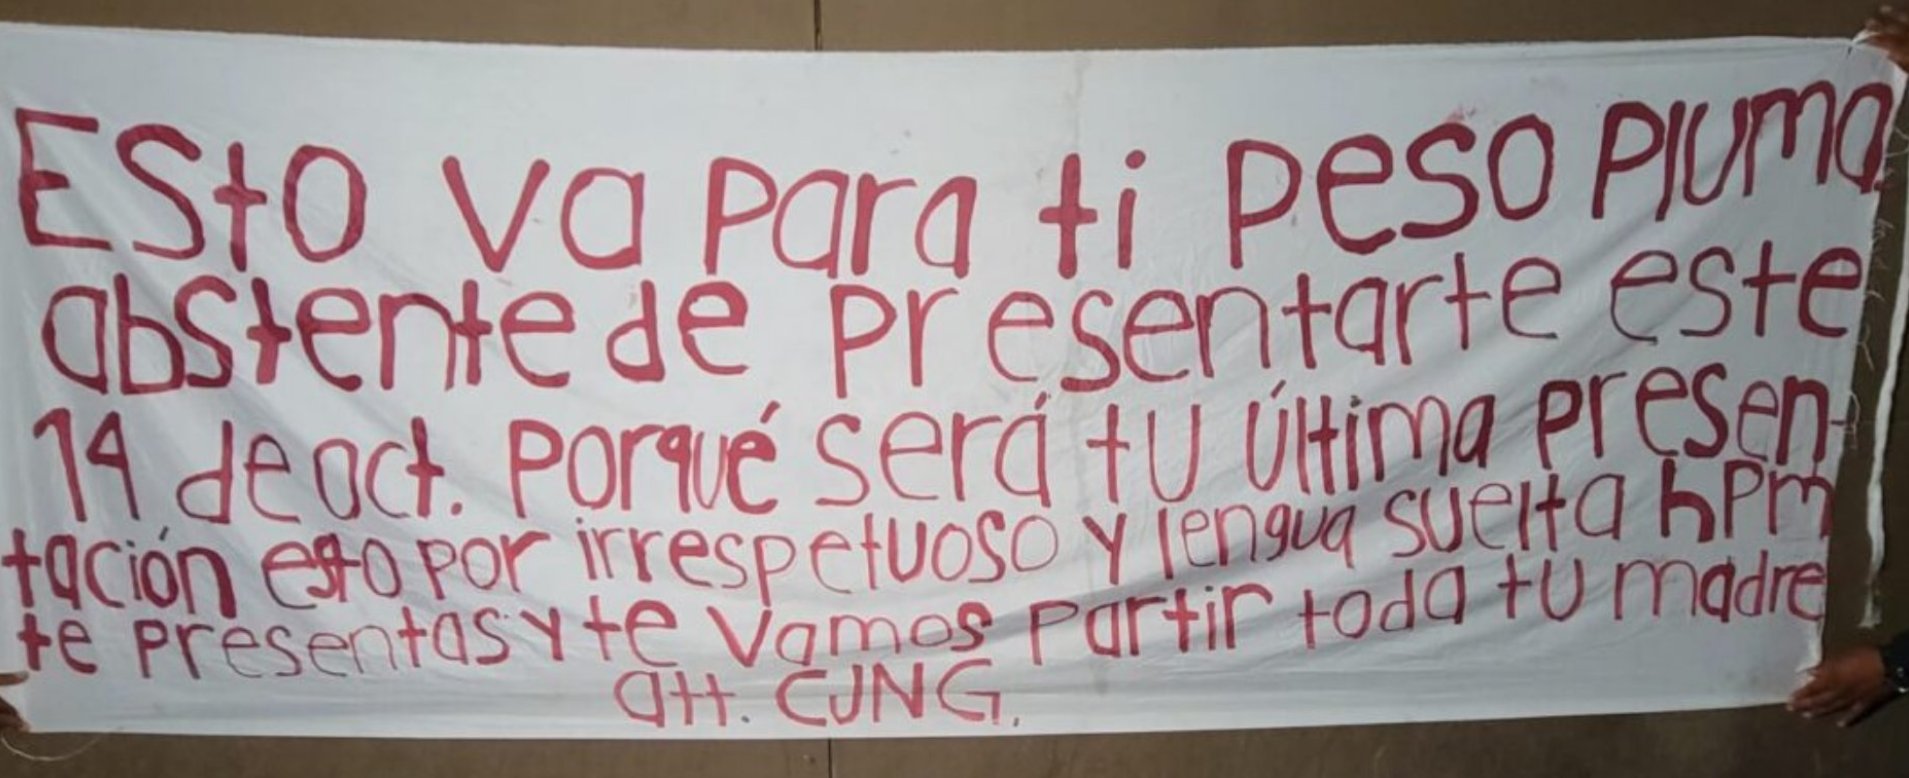 Esto va para ti peso pluma
abstente de presentarte este
14 de oct. porqué será tu última presen-
tación esto por irrespetuoso y lengua suelta hpm
te presentas y te vamos partir toda tu madre
att. CJNG.